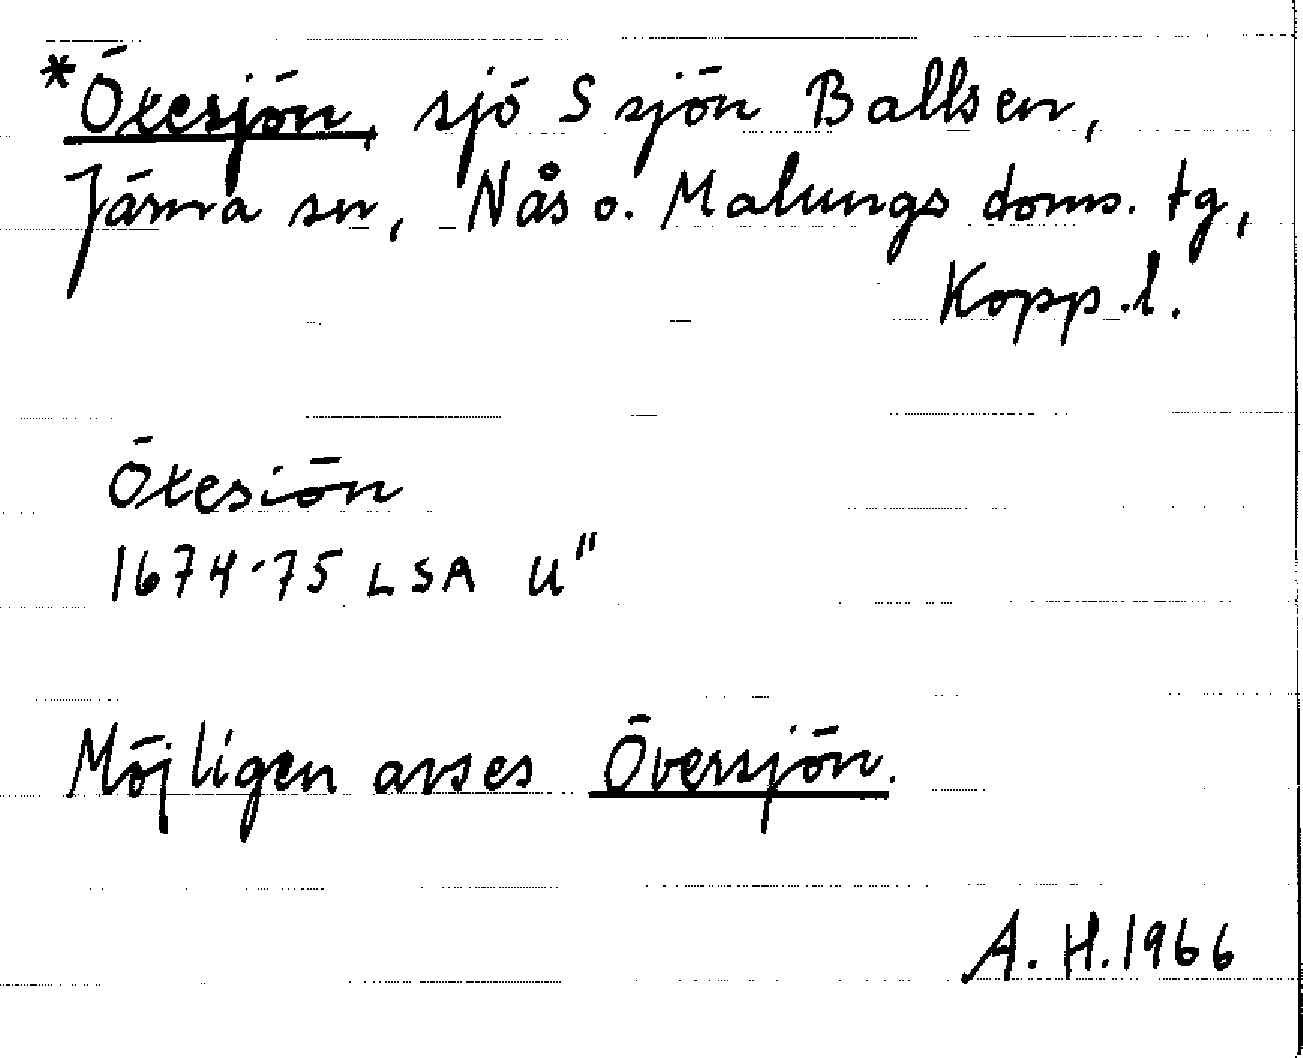 *Öxesjön, sjö S sjön Ballsen,
Järna sn, Nås o. Malungs doms. tg,
Kopp.l.
Öxesiön
1674-75 LSA U"
Möjligen avses Översjön.
A. H. 1966